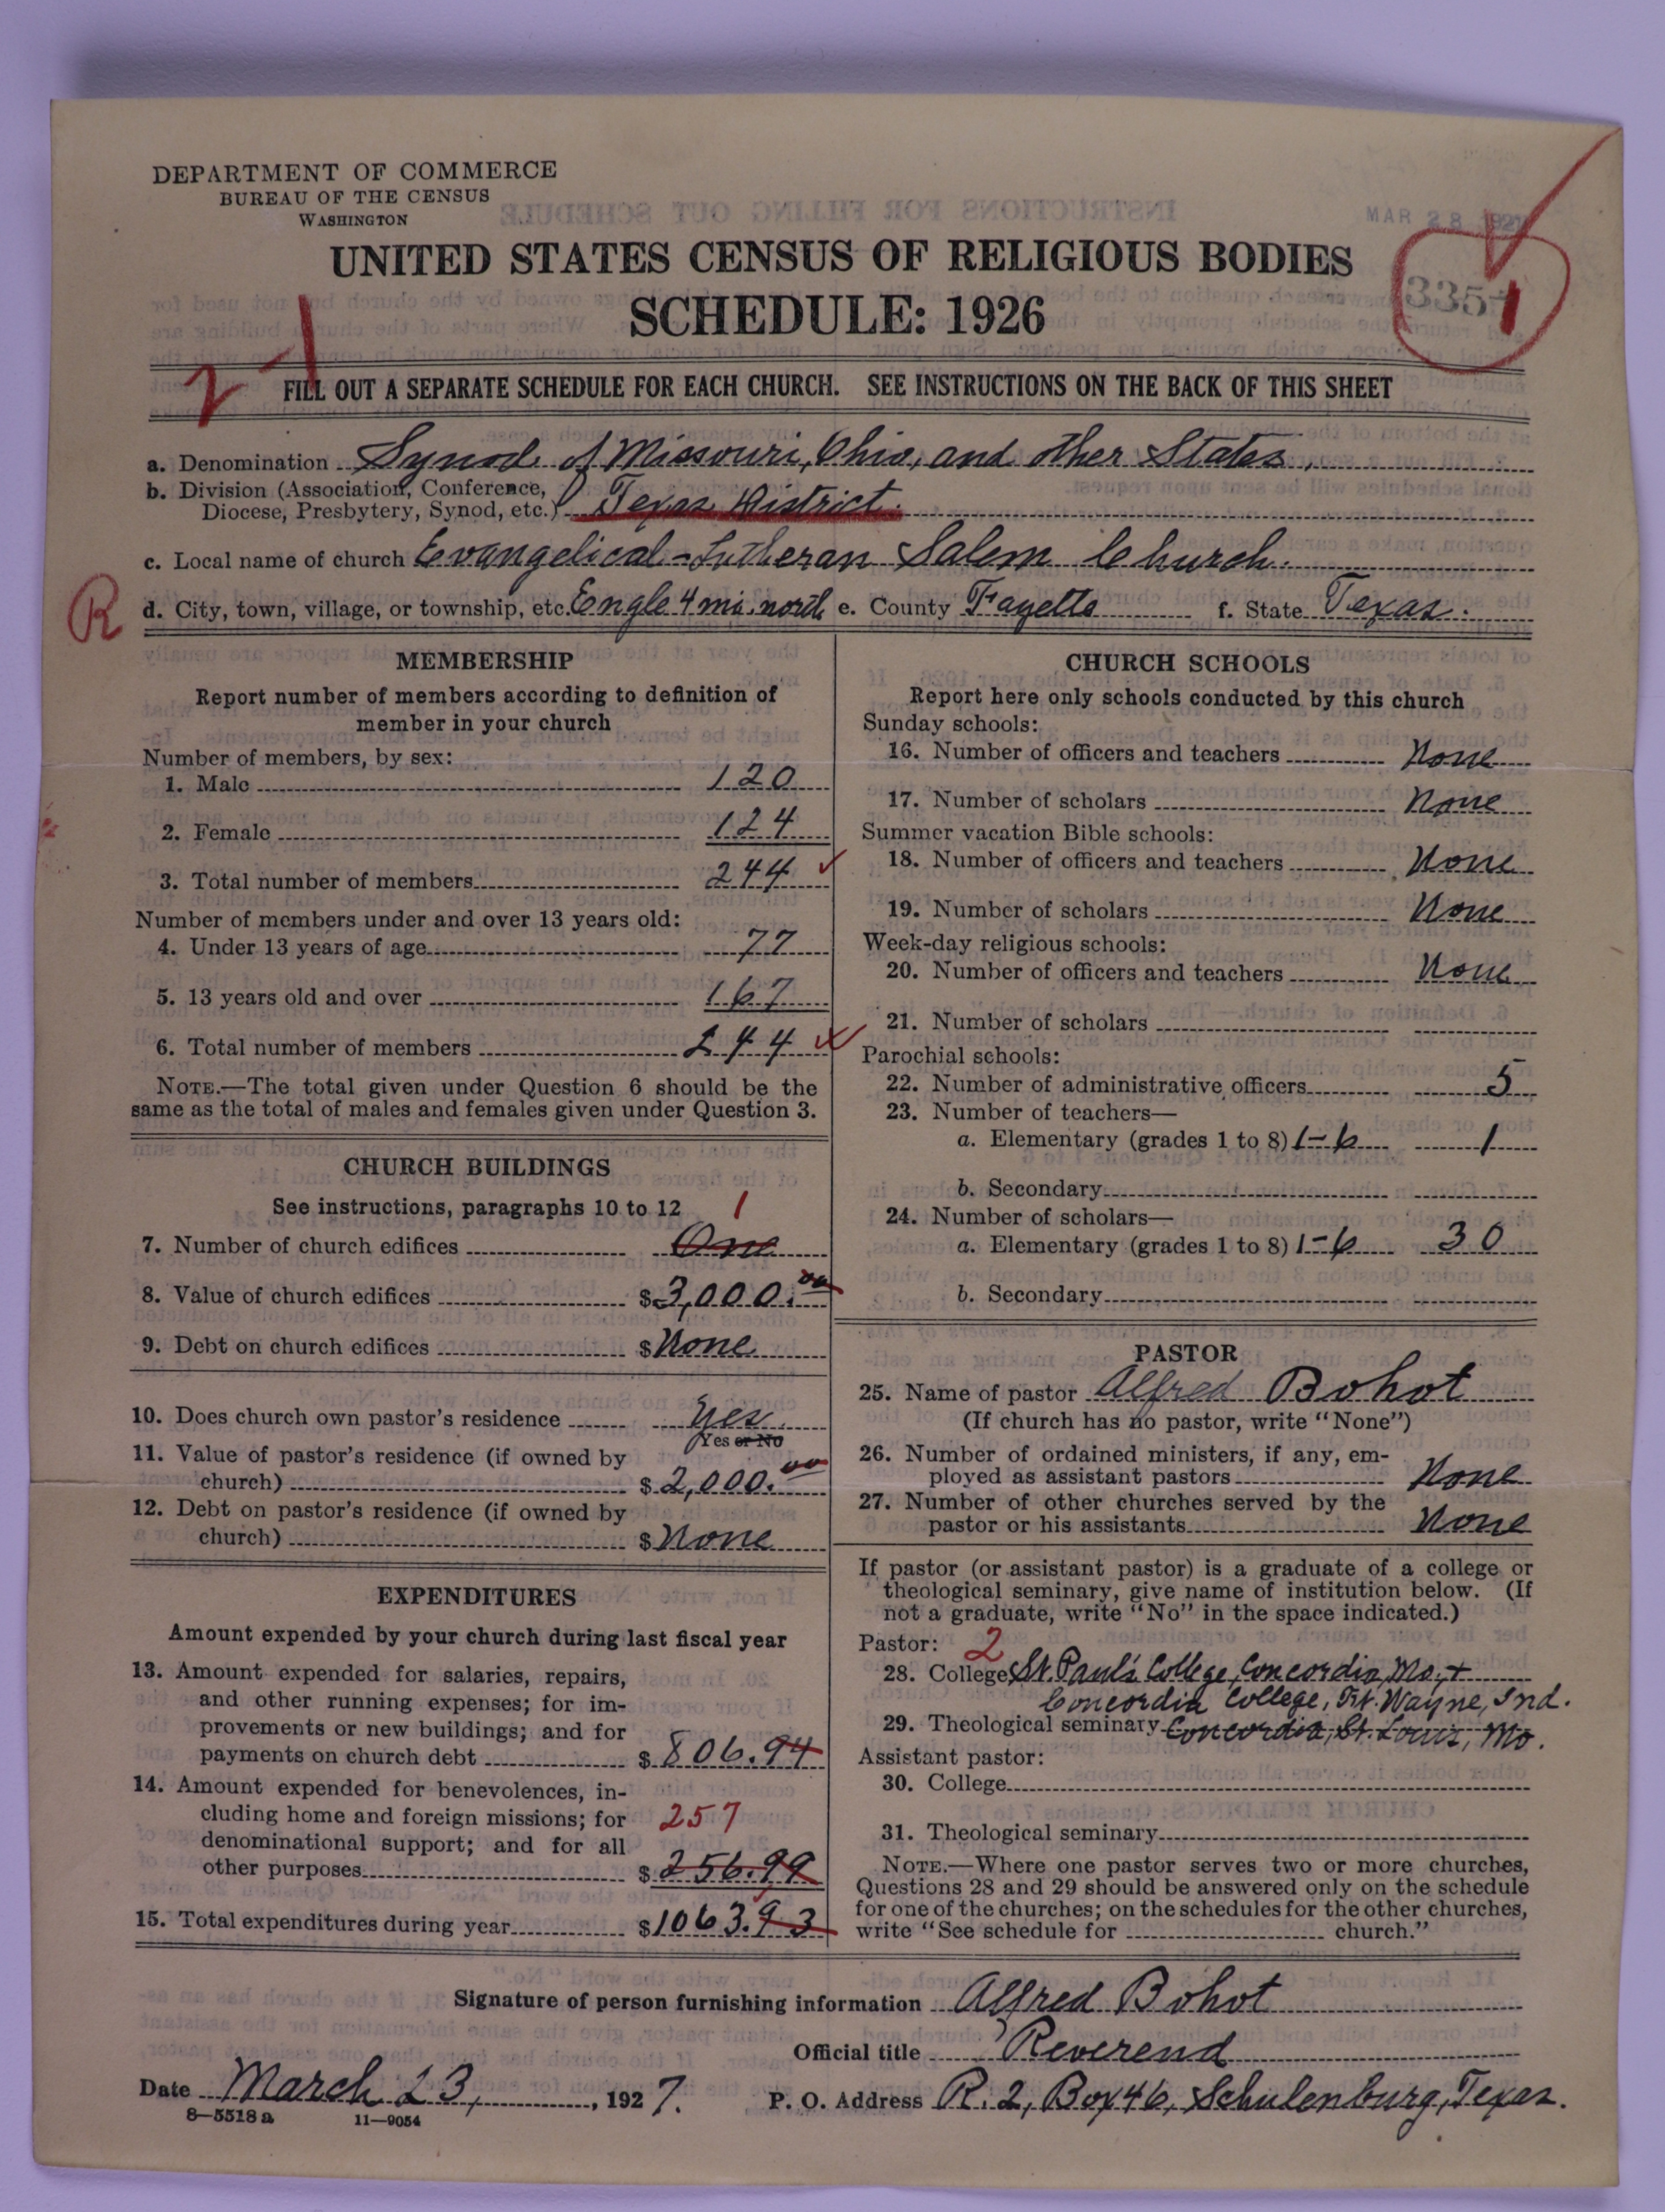 DEPARTMENT OF COMMERCE
BUREAU OF THE CENSUS
WASHINGTON
MAR 28 1927
UNITED STATES CENSUS OF RELIGIOUS BODIES
SCHEDULE: 1926
335
1
2 1
FILL OUT A SEPARATE SCHEDULE FOR EACH CHURCH. SEE INSTRUCTIONS ON THE BACK OF THIS SHEET
a. Denomination Synod of Missouri, Ohio, and other States.
b. Division (Association, Conference,
Diocese, Presbytery, Synod, etc.) Texas District.
c. Local name of church Evangelical-Lutheran Salem Church.
R
d. City, town, village, or township, etc. Engle 4 mi. north e. County Fayette f. State Texas.
MEMBERSHIP
Report number of members according to definition of
member in your church
Number of members, by sex:
1. Male 120
2. Female 124
3. Total number of members 244
Number of members under and over 13 years old:
4. Under 13 years of age 77
5. 13 years old and over 167
6. Total number of members 244
NOTE.—The total given under Question 6 should be the
same as the total of males and females given under Question 3.
CHURCH BUILDINGS
See instructions, paragraphs 10 to 12
1
7. Number of church edifices One
8. Value of church edifices $3,000.00
9. Debt on church edifices $None
10. Does church own pastor's residence Yes
Yes or No
11. Value of pastor's residence (if owned by
church) $2,000.00
12. Debt on pastor's residence (if owned by
church) $None
EXPENDITURES
Amount expended by your church during last fiscal year
13. Amount expended for salaries, repairs,
and other running expenses; for im-
provements or new buildings; and for
payments on church debt $806.94
14. Amount expended for benevolences, in-
cluding home and foreign missions; for 257
denominational support; and for all
other purposes $256.99
15. Total expenditures during year $1063.93
CHURCH SCHOOLS
Report here only schools conducted by this church
Sunday schools:
16. Number of officers and teachers None
17. Number of scholars None
Summer vacation Bible schools:
18. Number of officers and teachers None
19. Number of scholars None
Week-day religious schools:
20. Number of officers and teachers None
21. Number of scholars
Parochial schools:
22. Number of administrative officers 5
23. Number of teachers—
a. Elementary (grades 1 to 8) 1-6 1
b. Secondary
24. Number of scholars—
a. Elementary (grades 1 to 8) 1-6 30
b. Secondary
PASTOR
25. Name of pastor Alfred Bohot
(If church has no pastor, write "None")
26. Number of ordained ministers, if any, em-
ployed as assistant pastors None
27. Number of other churches served by the
pastor or his assistants None
If pastor (or assistant pastor) is a graduate of a college or
theological seminary, give name of institution below. (If
not a graduate, write "No" in the space indicated.)
Pastor: 2
28. College St. Paul's College, Concordia, Mo., +
Concordia College, Ft. Wayne, Ind.
29. Theological seminary Concordia, St. Louis, Mo.
Assistant pastor:
30. College
31. Theological seminary
NOTE.—Where one pastor serves two or more churches,
Questions 28 and 29 should be answered only on the schedule
for one of the churches; on the schedules for the other churches,
write "See schedule for church."
Signature of person furnishing information Alfred Bohot
Official title Reverend
Date March 23, 1927. P. O. Address R. 2, Box 46, Schulenburg, Texas.
8—5518 a 11—9054